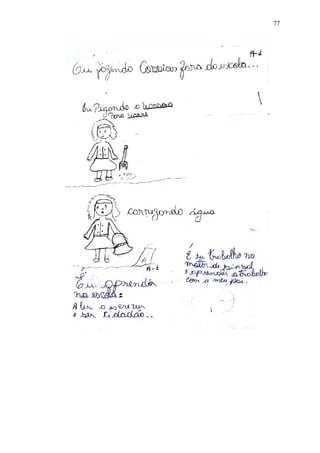 77
A-1
Eu fazendo Coisas fora da escola...
Eu Pegando o
Para
carregando água
A-1
E eu trabalho no
e aprender a trabalho
com o meu pai.
Eu Aprender
na escola:
A ler a escrever
e ser Cidadão..